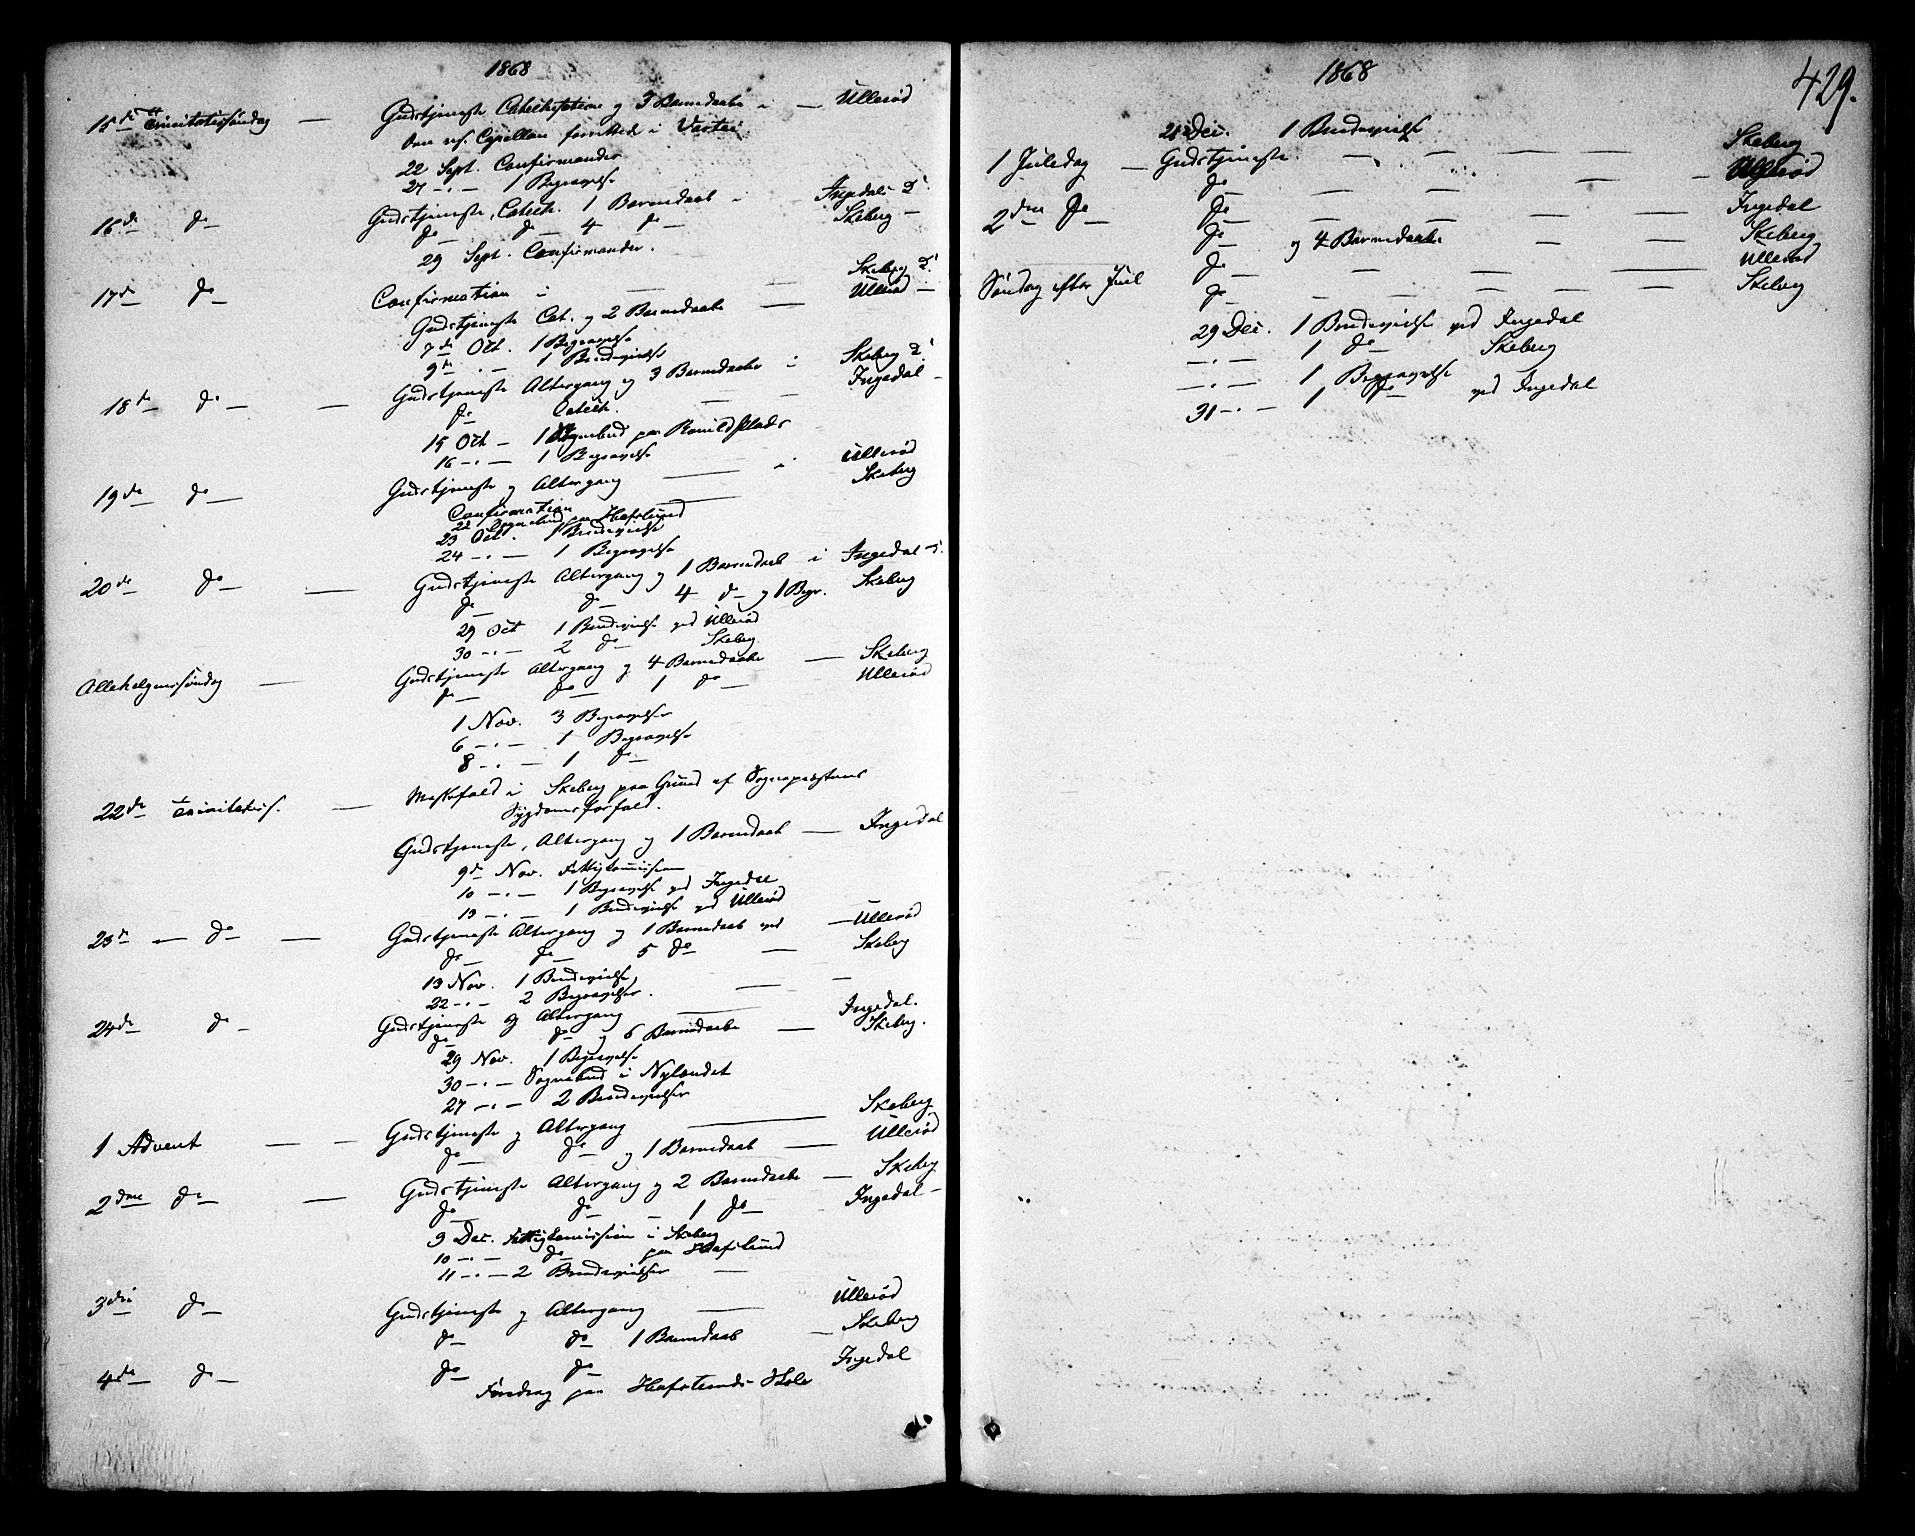 1868
15de Trinitatissöndag — Gudstjeneste Catechisation og 3 Barnedaabe i — Ullerød
Den res. Capellan forrettede i Varteig
22 Sept. Confirmander
27 -"- — 1 Begravelse
16de do — Gudstjeneste, Catech. 1 Barnedaab i — Ingedal
do — do — 4 do — Skeberg —
29 Sept. Confirmander.
17de do — Confirmation i — — Skeberg
Gudstjeneste Cat. og 2 Barnedaabe — Ullerød —
7de Oct. 1 Begravelse
9de -"- — 1 Brudevielse
18de — do — — Gudstjeneste Altergang og 3 Barnedaabe i Skeberg
do Catech. — — Ingedal —
15 Oct — 1 Sognebud paa
16 -"- — 1 Begravelse
19de do — Gudstjeneste og Altergang — i Ullerød
Confirmation — Skeberg
22 Sognebud paa Hafslund
23 Oct. 1 Brudevielse
24 -"- — 1 Begravelse
20de do — — Gudstjeneste Altergang og 1 Barnedaab i Ingedal
do — do — 4 do — og 1 Begr. Skeberg
29 Oct 1 Brudevielse ved Ullerød
30 -"- — 2 do — Skeberg
Allehelgenssöndag — Gudstjeneste Altergang og 4 Barnedaabe — Skeberg
do — do — 1 do — Ullerød
1 Nov. 3 Begravelser
6 -"- — 1 Begravelse
8 -"- — 1 do
22de Trinitatiss. — Messefald i Skeberg paa Grund af Sognepræstens
Sygdomsforfald.
Gudstjeneste, Altergang og 1 Barnedaab — Ingedal
9de Nov. Fattigkommission
10 -"- — 1 Begravelse ved Ingedal
13 -"- — 1 Brudevielse ved Ullerød
23de — do — — Gudstjeneste Altergang og 1 Barnedaab ved — Ullerød
do — do — 5 do — Skeberg
13 Nov. 1 Brudevielse
22 -"- 2 Begravelser. — —
24de do — Gudstjeneste og Altergang — Ingedal.
do — do og 6 Barnedaabe — Skeberg.
29 Nov. 1 Begravelse
30 -"- — Sognebud i Nylandet
27 -"- — 2 Brudevielser
1 Advent — — Gudstjeneste og Altergang — Skeberg
do — do — og 1 Barnedaab — Ullerød
2den do — — Gudstjeneste Altergang og 2 Barnedaabe — Skeberg
do do — 1 do — Ingedal —
9 Dec. Fattigkommission i Skeberg
10 -"- — do — paa Hafslund
11 -"- — 2 Brudevielser —
3die do — Gudstjeneste og Altergang — Ullerød
do — do 1 Barnedaab — Skeberg
4de do — do — do — Ingedal
Foredrag paa Hafslunds Skole
1868
429.
Dec. 1 Brudevielse — Skeberg
1 Juledag — Gudstjeneste — — — — Ullerød
do — — — — — Ingedal
2den do — do — — — — Skeberg
do — og 4 Barnedaabe — — Ullerød
Søndag efter Juul do — — — — Skeberg
do — — — — —
29 Dec. 1 Brudevielse ved Ingedal
-"- — 1 do — Skeberg
-"- — 1 Begravelse
31 -"- — 1 do — ved Ingedal